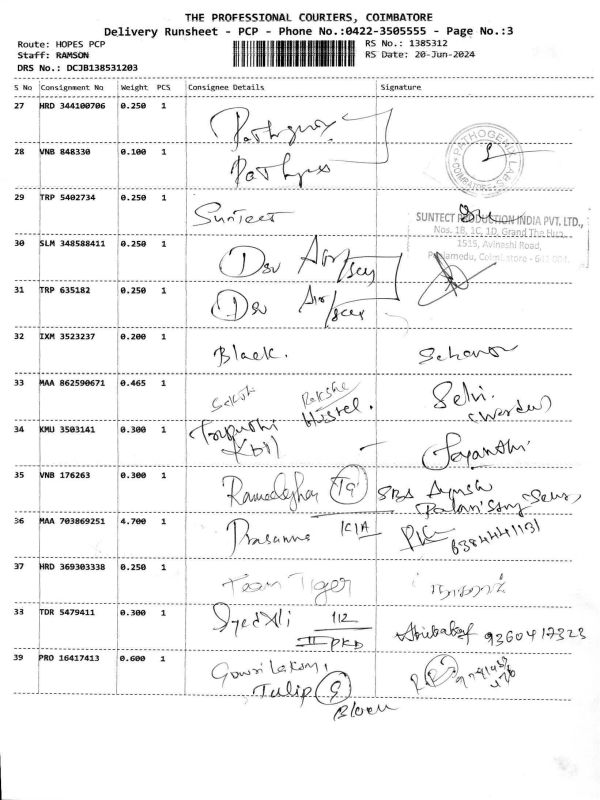 THE PROFESSIONAL COURIERS, COIMBATORE
Delivery Runsheet - PCP - Phone No.:0422-3505555 - Page No.:3
Route: HOPES PCP
RS No.: 1385312
Staff: RAMSON
RS Date: 20-Jun-2024
DRS No.: DCJB138531203
S No Consignment No Weight PCS Consignee Details Signature
27 HRD 344100706 0.250 1
28 VNB 848330 0.100 1
PATHOGENIX LAB
COIMBATORE
29 TRP 5402734 0.250 1 Suntect
SUNTECT PRODUCTION INDIA PVT. LTD.,
Nos. 1B, 1C, 1D, Grand The Hub,
1515, Avineshi Road,
Peelamedu, Coimbatore - 641 004.
30 SLM 348588411 0.250 1 Dev
31 TRP 635182 0.250 1 Dev
32 IXM 3523237 0.200 1 Black.
33 MAA 862590671 0.465 1 Hostel. Selvi.
(Warden)
34 KMU 3503141 0.300 1 Jayanthi
35 VNB 176263 0.300 1
36 MAA 703869251 4.700 1 Prasanna
6384441131
37 HRD 369303338 0.250 1 Team Tiger
33 TDR 5479411 0.300 1 Syed Ali 112 9360417323
39 PRO 16417413 0.600 1
Tulip 9
Block